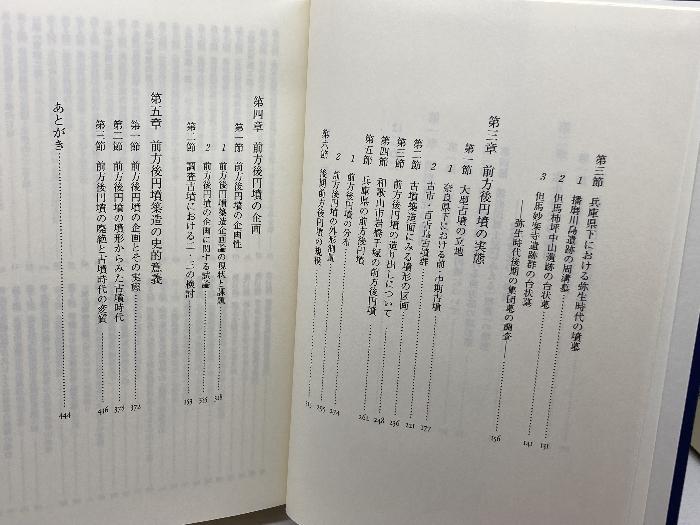 第三節 兵庫県下における弥生時代の墳墓
1 播磨川島遺跡の周溝墓
2 但馬柿坪中山遺跡の台状墓 131
3 但馬妙楽寺遺跡群の台状墓 141
——弥生時代後期の集団墓の調査——
第三章 前方後円墳の実態 156
第一節 大型古墳の立地
1 奈良県下における前・中期古墳
2 古市・百舌鳥古墳群 177
第二節 古墳築造面にみる墳形の区画 221
第三節 前方後円墳の造り出しについて 236
第四節 和歌山市岩橋千塚の前方後円墳 248
第五節 兵庫県の前方後円墳 262
1 前方後円墳の分布
2 前方後円墳の外形測量 274
第六節 後期前方後円墳の規模 295
315
第四章 前方後円墳の企画
第一節 前方後円墳の企画性
1 前方後円墳築造企画論の現状と課題 318
2 前方後円墳の企画に関する試論 325
第二節 調査古墳における二・三の検討 353
第五章 前方後円墳築造の史的意義
第一節 前方後円墳の企画とその実態 372
第二節 前方後円墳の墳形からみた古墳時代
第三節 前方後円墳の廃絶と古墳時代の変質
あとがき 444